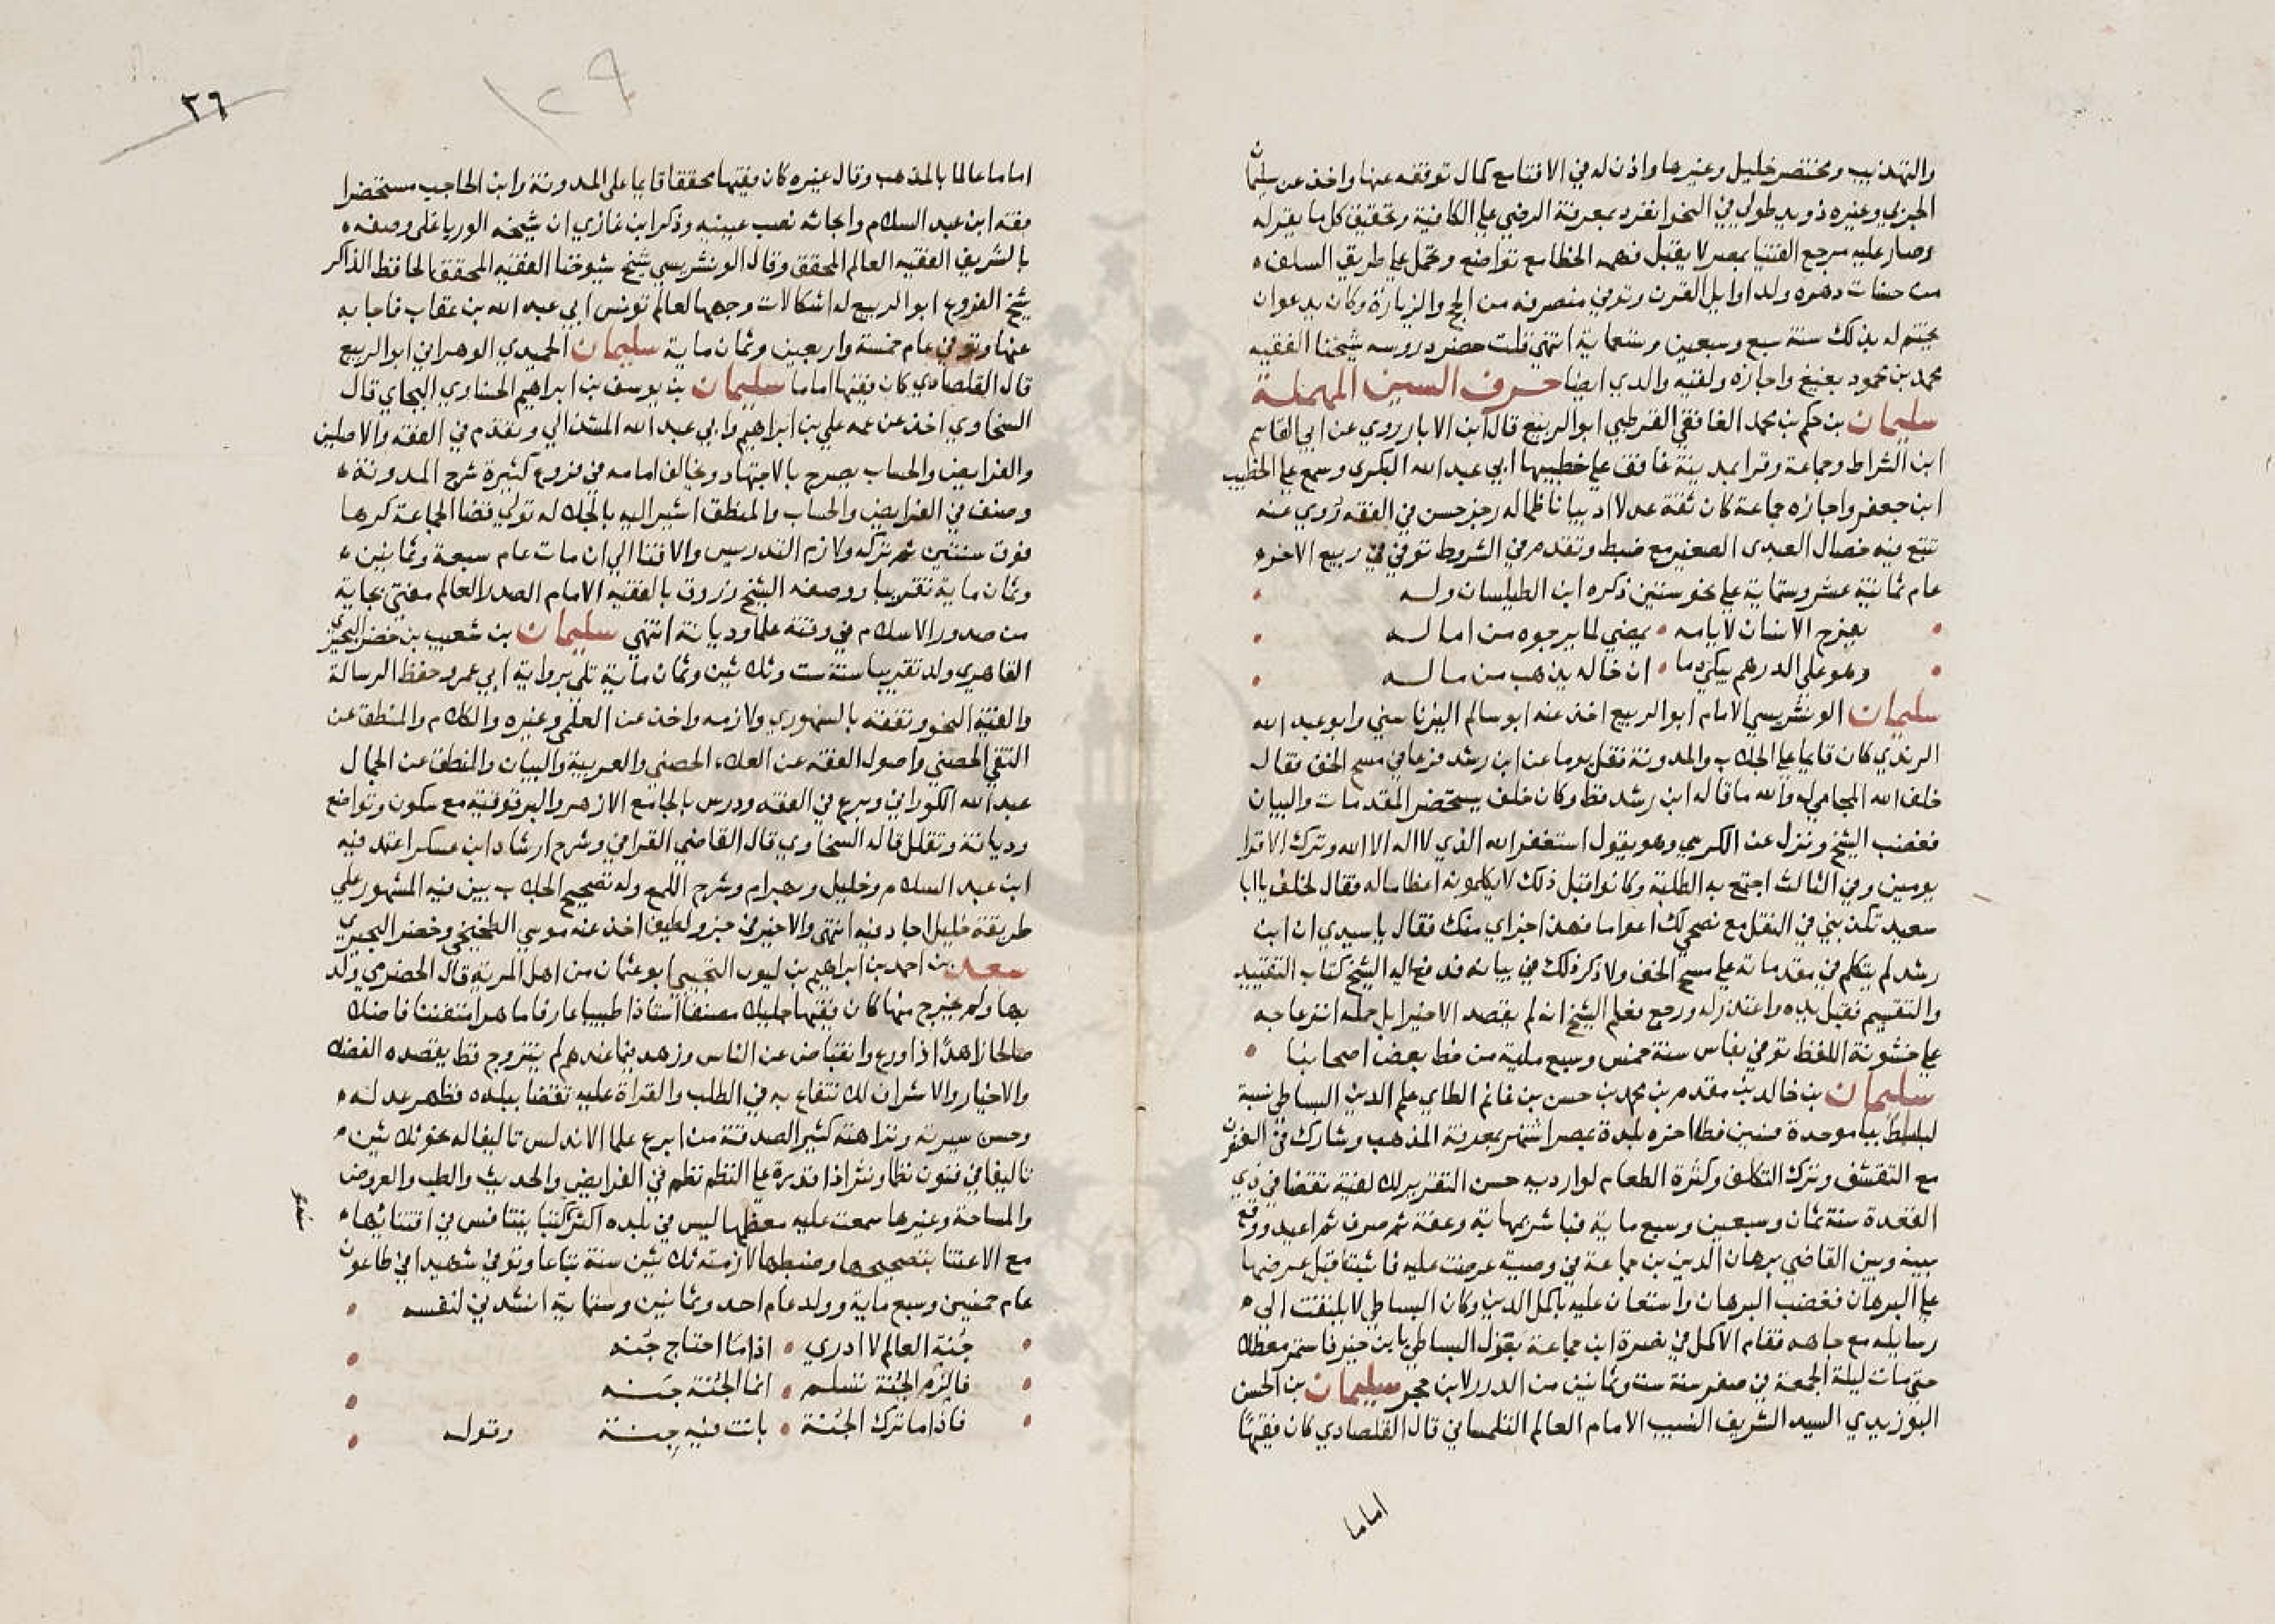 والتهذيب ومختصر خليل وغيرها واذن له في الافتا مع كمال توقفه عنها واخذ عن سليمان
الجبزي وغيره ذو يد طولي في النحو انفرد بمعرفة الرضي علي الكافية وتحقيق كل ما يقرله
وصار عليه مرجع الفتيا بمصر لا يقبل فهمه الخطا مع تواضع وتحمل علي طريق السلف
من حسنات دهره ولد اوايل القرن وتوفي منصرفه من الحج والزيارة وكان يدعو ان
يختم له بذلك سنة سبع وسبعين وتسعماية انتهي قلت حضر دروسه شيخنا الفقيه
محمد بن محمود بغيغ واجازه ولقيه والدي ايضا حرف السين المهملة
سليمان بن حكم بن محمد الغافقي القرطبي ابو الربيع قال ابن الابار روي عن ابي القاسم
ابن الشراط وجماعة وقرا بمدينة غافق علي خطيبها ابي عبد الله البكري وسمع علي الخطيب
ابن جعفر واجازه جماعة كان ثقة عدلا اديبا ناظما له رجز حسن في الفقه روي عنه
تتبع فيه خصال العبدي الصغير مع ضبط وتقدم في الشروط توفي في ربيع الاخر
عام ثمانية عشر وستماية علي نحو ستين ذكره ابن الطيلسان وله
يفرح الانسان لايامه يمضي لما يرجوه من اماله
وهو علي الدرهم يبكي دما ان خاله يذهب من ماله
سليمان الونشريسي الامام ابو الربيع اخذ عنه ابو سالم اليزناسني وابو عبد الله
الرندي كان قايما علي الجلاب والمدونة فنقل يوما عن ابن رشد فرعا في مسح الخف فقال
خلف الله المجامي له والله ما قاله ابن رشد قط وكان خلف يستحضر المقدمات والبيان
فغضب الشيخ ونزل عن الكرسي وهو يقول استغفر الله الذي لا اله الا الله وترك الاقرا
يومين وفي الثالث اجتمع به الطلبة وكانوا قبل ذلك لا يكلمونه اعظاما له فقال لخلف يا ابا
سعيد تكذبني في النقل مع نصحي لك اعواما فهذا جزاي منك فقال يا سيدي ان ابن
رشد لم يتكلم في مقدماته علي مسح الخف ولا ذكر ذلك في بيانه فدفع اليه الشيخ كتاب التقييد
والتقسيم فقبل يده واعتذر له ورجع فعلم الشيخ انه لم يقصد الا خيرا بل حمله انزعاجه
علي خشونة اللفظ توفي بفاس سنة خمس وسبع ماية من خط بعض اصحابنا
سليمان بن خالد بن مقدم بن محمد بن حسن بن غانم الطاي علم الدين البساطي نسبة
لبساط بباء موحدة فسين فطا اخره بلدة بمصر اشتهر بمعرفة المذهب وشارك في الفنون
مع التقشف وترك التكلف وكثرة الطعام لوارديه حسن التقرير للالفية تقضا في ذي
القعدة سنة ثمان وسبعين وسبع ماية فباشر بمهابة وعفة ثم صرف ثم اعيد ووقع
بينه وبين القاضي برهان الدين بن جماعة في وصية عرضت عليه فاثبتها قبل عرضها
علي البرهان فغضب البرهان واستعان عليه باكمل الدين وكان البساطي لا يلتفت الي
رسايله مع جاهه فقام الاكمل في نصرة ابن جماعة بعزل البساطي بابن خير فاستمر معطلا
حتي مات ليلة الجمعة في صفر سنة ستة وثمانين من الدرر لابن حجر سليمان بن الحسن
البوزيدي السيد الشريف النسيب الامام العالم التلمساني قال القلصادي كان فقيها
اماما
٣٦
١٢٩
اماما عالما بالمذهب وقال غيره كان فقيها محققا قايما علي المدونة وابن الحاجب مستحضرا
فقه ابن عبد السلام وابحاثه نصب عينيه وذكر ابن غازي ان شيخه الورياغلي وصفه
بالشريف الفقيه العالم المحقق وقال الونشريسي شيخ شيوخنا الفقيه المحقق الحافظ الذاكر
شيخ الفروع ابو الربيع له اشكالات وجهها لعالم تونس ابي عبد الله بن عقاب فاجابه
عنها وتوفي عام خمسة واربعين وثمان ماية سليمان الحميدي الوهراني ابو الربيع
قال القلصادي كان فقيها اماما سليمان بن يوسف بن ابراهيم الحسناوي البجاي قال
السخاوي اخذ عن عمه علي بن ابراهيم وابي عبد الله المشدالي وتقدم في الفقه والاصلين
والفرايض والحساب يصرح بالاجتهاد ويخالف امامه في فروع كثيرة شرح المدونة
وصنف في الفرايض والحساب والمنطق اشير اليه بالجلالة تولي قضا الجماعة كرها
فوق سنتين ثم تركه ولازم التدريس والافتا الي ان مات عام سبعة وثمانين
وثمان ماية تقريبا ووصفه الشيخ زروق بالفقيه الامام الصدر العالم مفتي بجاية
من صدور الاسلام في وقته علما وديانة انتهي سليمان بن شعيب بن خضر البحيري
القاهري ولد تقريبا سنة ست وثلاثين وثمان ماية تلي برواية ابي عمرو حفظ الرسالة
والفية النحو وتفقه بالسنهوري ولازمه واخذ عن العلمي وغيره والكلام والمنطق عن
التقي الحصني واصول الفقه عن العلاء الحصني والعربية والبيان والمنطق عن الجمال
عبد الله الكوراني وبرع في الفقه ودرس بالجامع الازهر والبرقوقية مع سكون وتواضع
وديانة وتقلل قاله السخاوي قال القاضي القرافي وشرح ارشاد ابن عسكر اعتمد فيه
ابن عبد السلام وخليل وبهرام وشرح اللمع وله تصحيح الجلاب يبين فيه المشهور علي
طريقة خليل اجاد فيه انتهي والاخير في جزء لطيف اخذ عنه موسي الطخيخي وخضر البحيري
سعد بن احمد بن ابراهيم بن ليون التجيبي ابو عثمان من اهل المرية قال الحضرمي ولد
بها ولم يخرج منها كان فقيها جليلا مصنفا استاذا طبيبا عارفا ماهرا متفننا فاضلا
صالحا زاهدا ذا ورع وانقباض عن الناس وزهد بما عندهم لم يتزوج قط يقصده الفضلاء
والاخيار والاشراف للانتفاع به في الطلب والقراة عليه تقضا ببلده فظهر عدله
وحسن سيرته ونزاهته كثير الصدقة من ابرع علما الاندلس تاليفا له نحو ثلاثين
تاليفا في فنون نظما ونثرا ذا قدرة علي النظم نظم في الفرايض والحديث والطب والعروض
والمساحة وغيرها سمعت عليه معظمها ليس في بلده اكثر كتبا يتنافس في اقتنائها
مع الاعتنا بتصحيحها وضبطها لازمته ثلاثين سنة تباعا وتوفي شهيدا في طاعون
عام خمسين وسبع ماية وولد عام احد وثمانين وستماية انشدني لنفسه
جُنة العالم لا ادري اذا ما احتاج جُنه
فالزم الجُنة تسلم انما الجُنة جَنه
فاذا ما ترك الجُنة بانت فيه جِنة وقوله